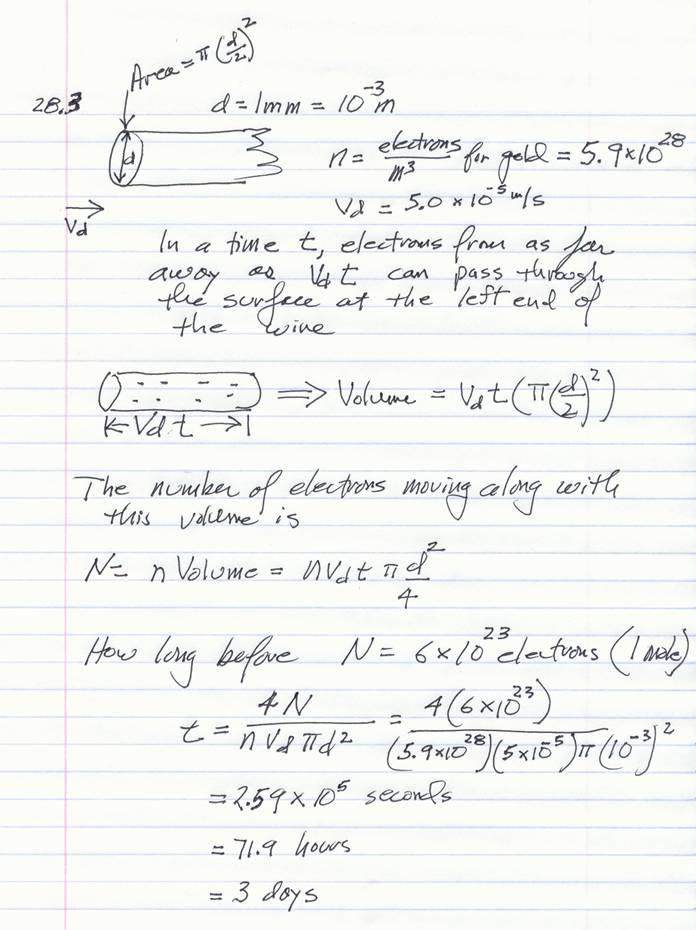 Area = π(d/2)²
28.3
d = 1mm = 10⁻³ m
d
n = electrons/m³ for gold = 5.9×10²⁸
Vd
Vd = 5.0 × 10⁻⁵ m/s
In a time t, electrons from as far
away as Vd t can pass through
the surface at the left end of
the wire
⇒ Volume = Vd t (π(d/2)²)
|← Vd t →|
The number of electrons moving along with
this volume is
N = n Volume = n Vd t π d²/4
How long before N = 6×10²³ electrons (1 mole)
t = 4N/(n Vd π d²) = 4(6×10²³)/((5.9×10²⁸)(5×10⁻⁵)π(10⁻³)²)
= 2.59 × 10⁵ seconds
= 71.9 hours
= 3 days